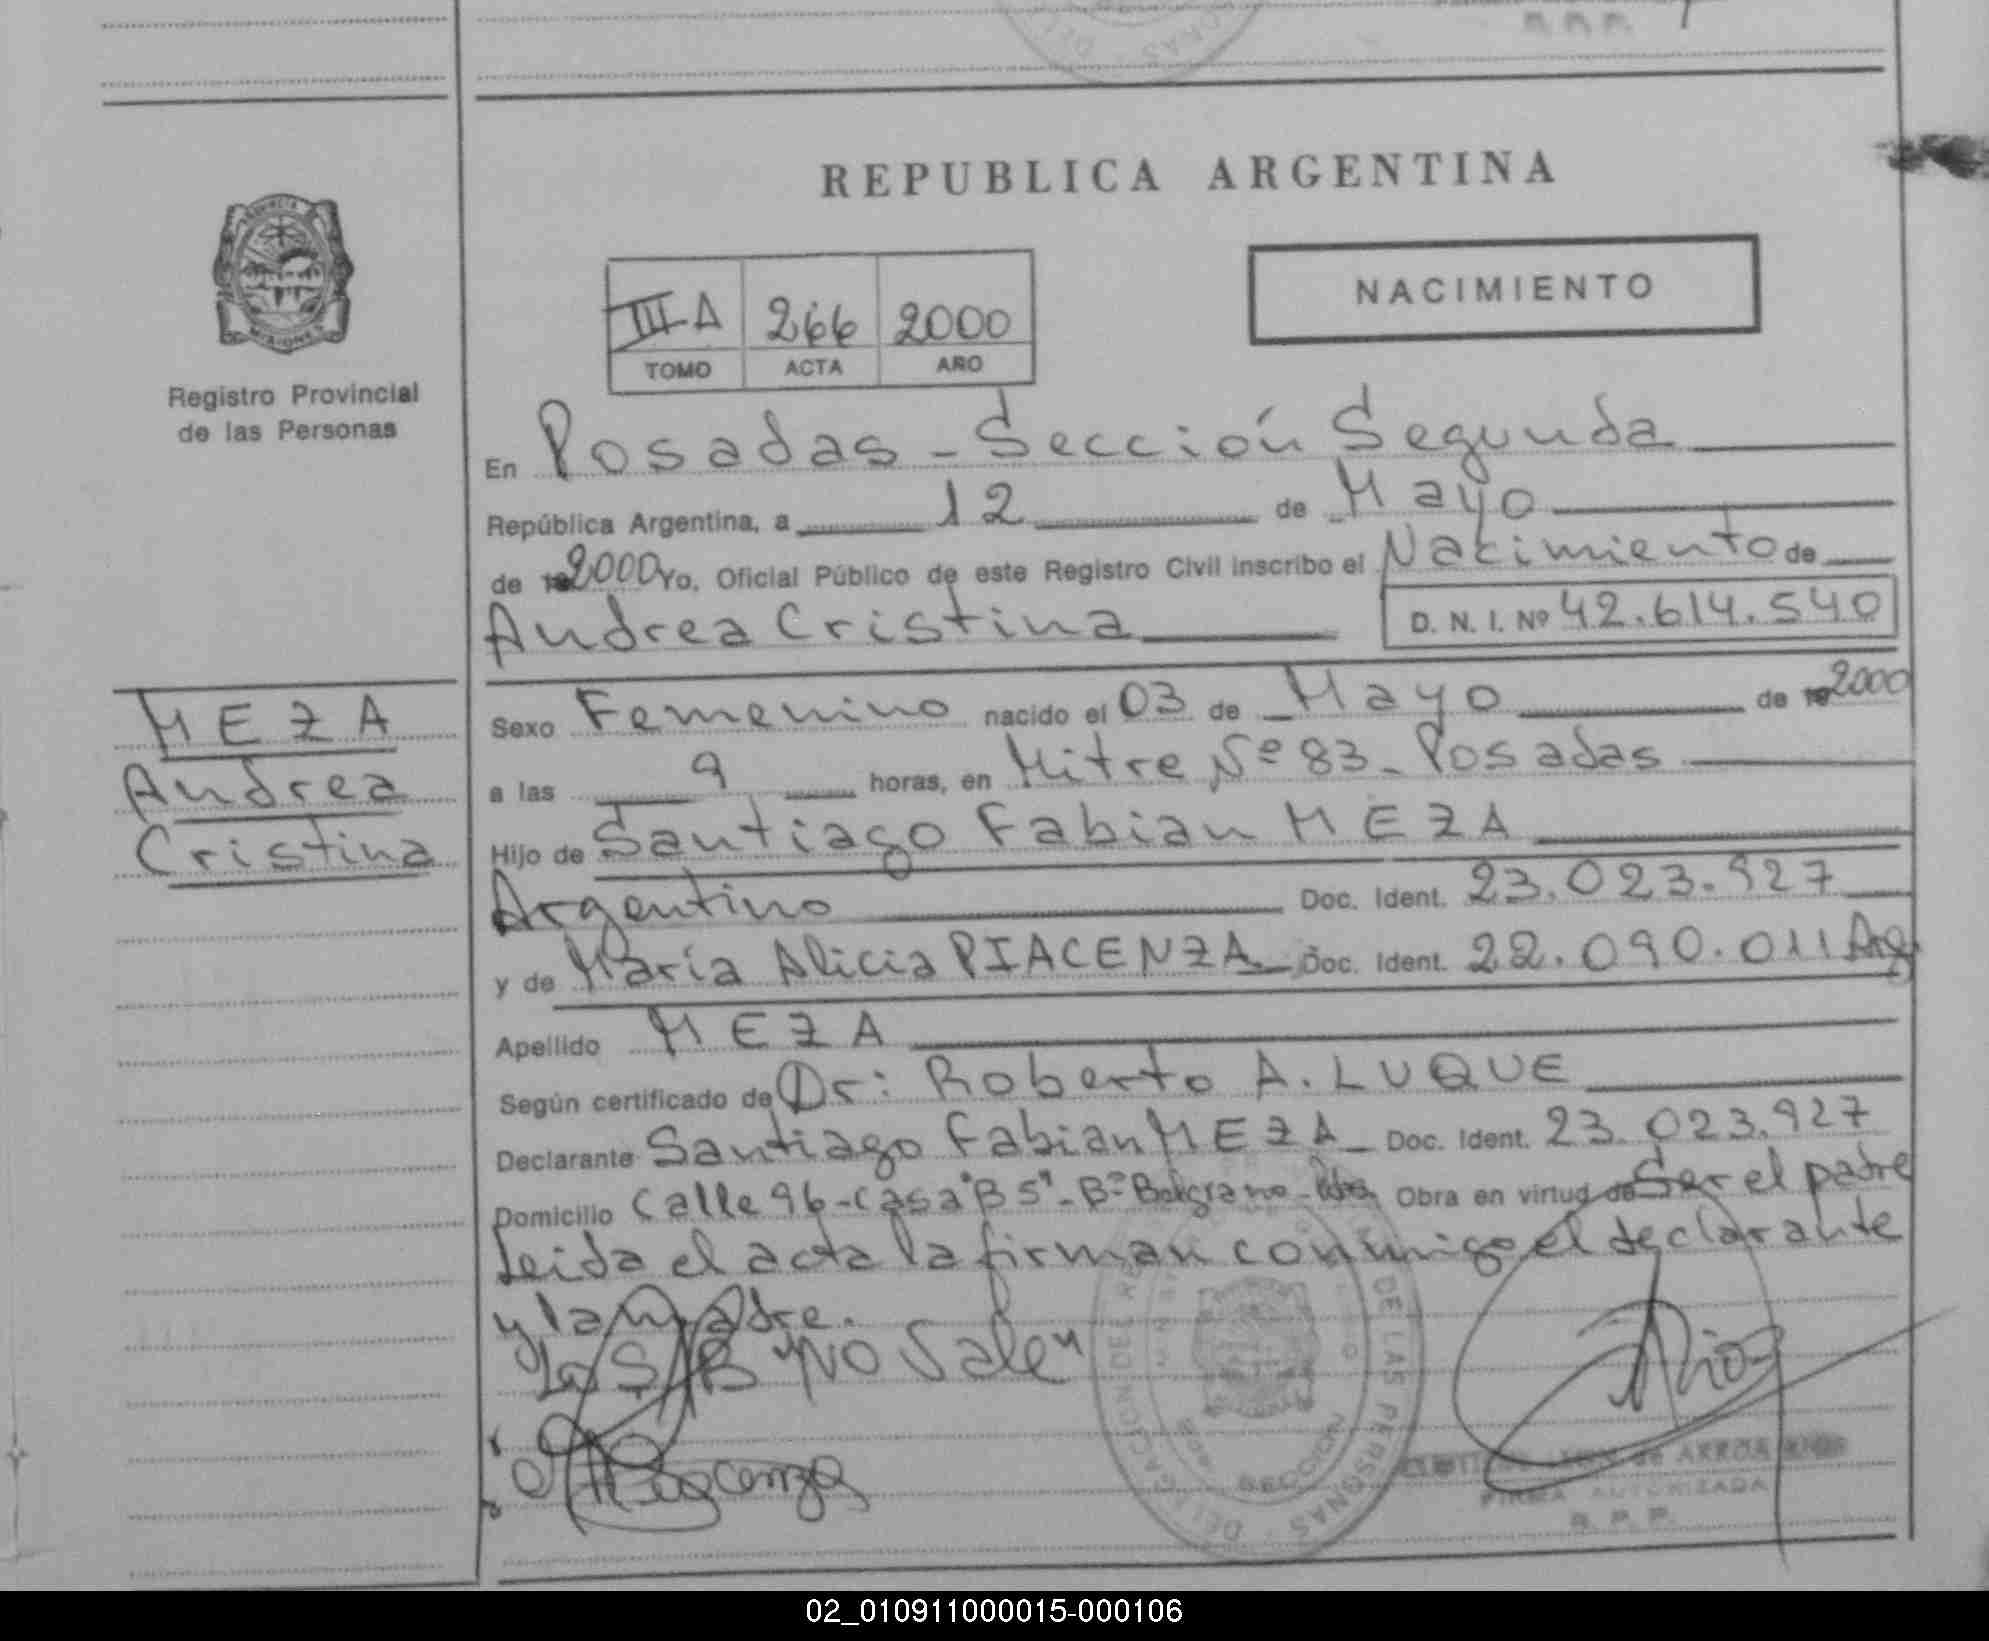 R. P. P.
REPUBLICA ARGENTINA
NACIMIENTO
III-A 266 2000
TOMO ACTA AÑO
PROVINCIA
MISIONES
Registro Provincial
de las Personas
En Posadas - Sección Segunda
República Argentina, a 12 de Mayo
de 2000 Yo, Oficial Público de este Registro Civil inscribo el Nacimiento de
Andrea Cristina D. N. I. Nº 42.614.540
MEZA
Andrea
Cristina
Sexo Femenino nacido el 03 de Mayo de 2000
a las 9 horas, en Mitre Nº 83 - Posadas
Hijo de Santiago Fabian MEZA
Argentino Doc. Ident. 23.023.927
y de María Alicia PIACENZA. Doc. Ident. 22.090.011 Arg.
Apellido MEZA
Según certificado de Dr: Roberto A. LUQUE
Declarante Santiago Fabian MEZA - Doc. Ident. 23.023.927
Domicilio Calle 96 - casa "B 5" - Bº Belgrano - Pdas. Obra en virtud de Ser el padre
Leida el acta la firman conmigo el declarante
y la madre.
La S/B "NO Vale"
Piacenza
Rios
DELEGACION DEL REGISTRO DE LAS PERSONAS
SECCION
de ARROA RIOS
FIRMA AUTORIZADA
R. P. P.
02_010911000015-000106